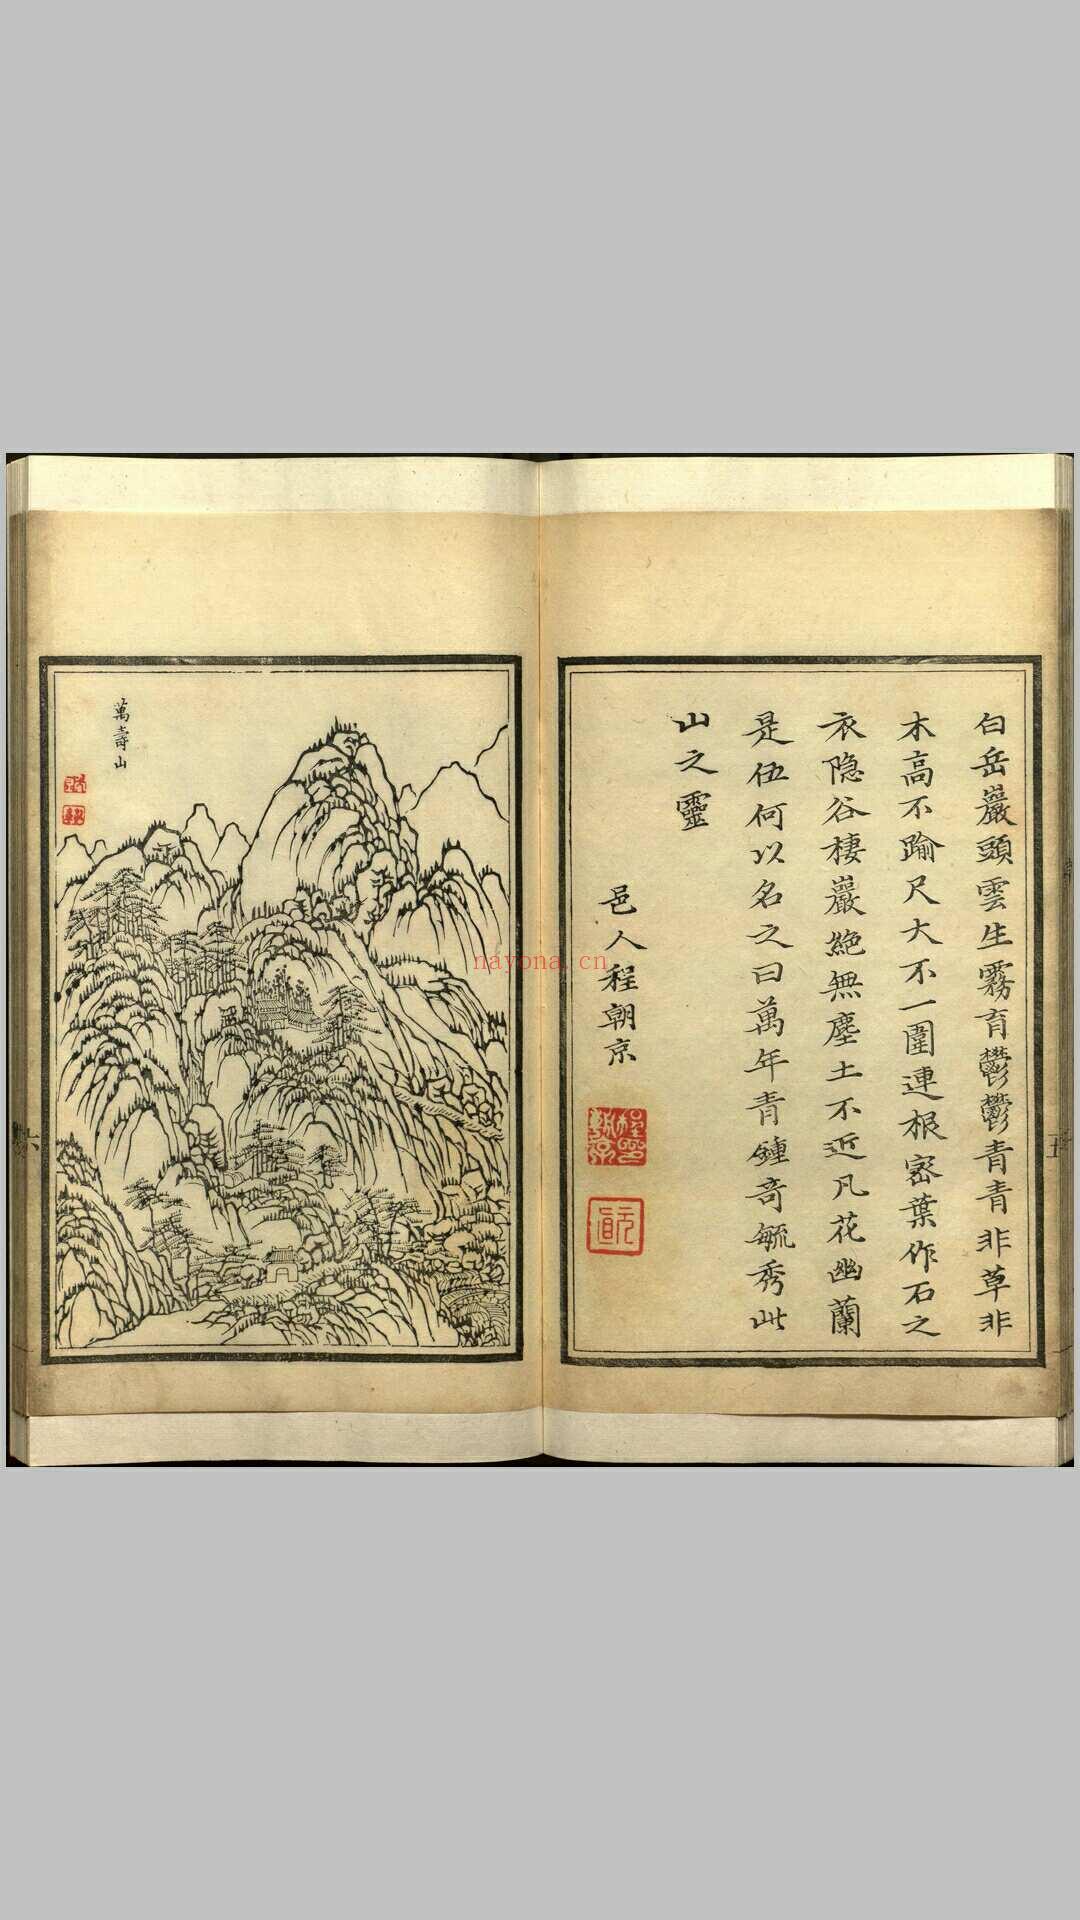 白岳巖頭雲生霧育鬱鬱青青非草非
木高不踰尺大不一圍連根密葉作石之
衣隐谷棲巖絶無塵土不近凡花幽蘭
是伍何以名之曰萬年青鍾奇毓秀此
山之靈
邑人程朝京
程朝京印
元直
萬壽山
nayona.cn
六